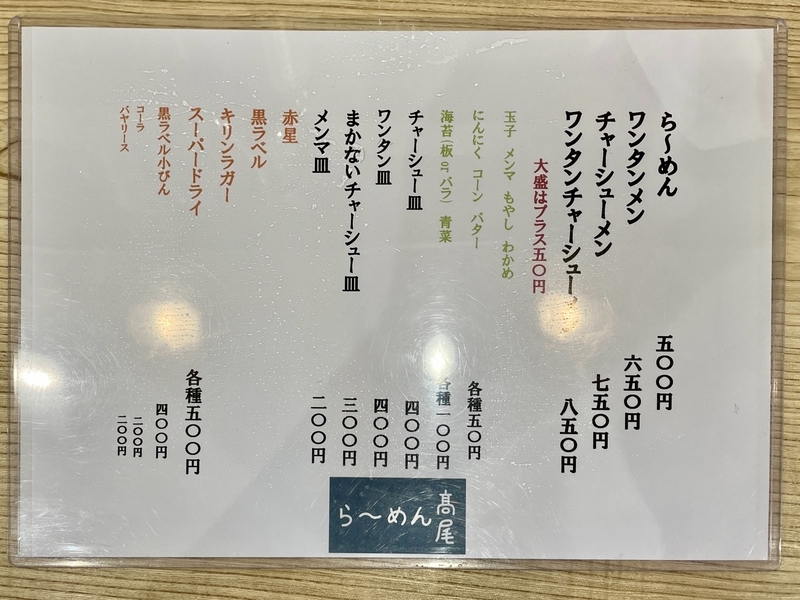 ら〜めん 五〇〇円
ワンタンメン 六五〇円
チャーシューメン 七五〇円
ワンタンチャーシュー 八五〇円
大盛はプラス五〇円
玉子 メンマ もやし わかめ
にんにく コーン バター 各種五〇円
海苔(板orバラ) 青菜 各種一〇〇円
チャーシュー皿 四〇〇円
ワンタン皿 四〇〇円
まかないチャーシュー皿 三〇〇円
メンマ皿 二〇〇円
赤星
黒ラベル
キリンラガー
スーパードライ 各種五〇〇円
黒ラベル小びん 四〇〇円
コーラ 二〇〇円
バヤリース 二〇〇円
ら〜めん 髙尾